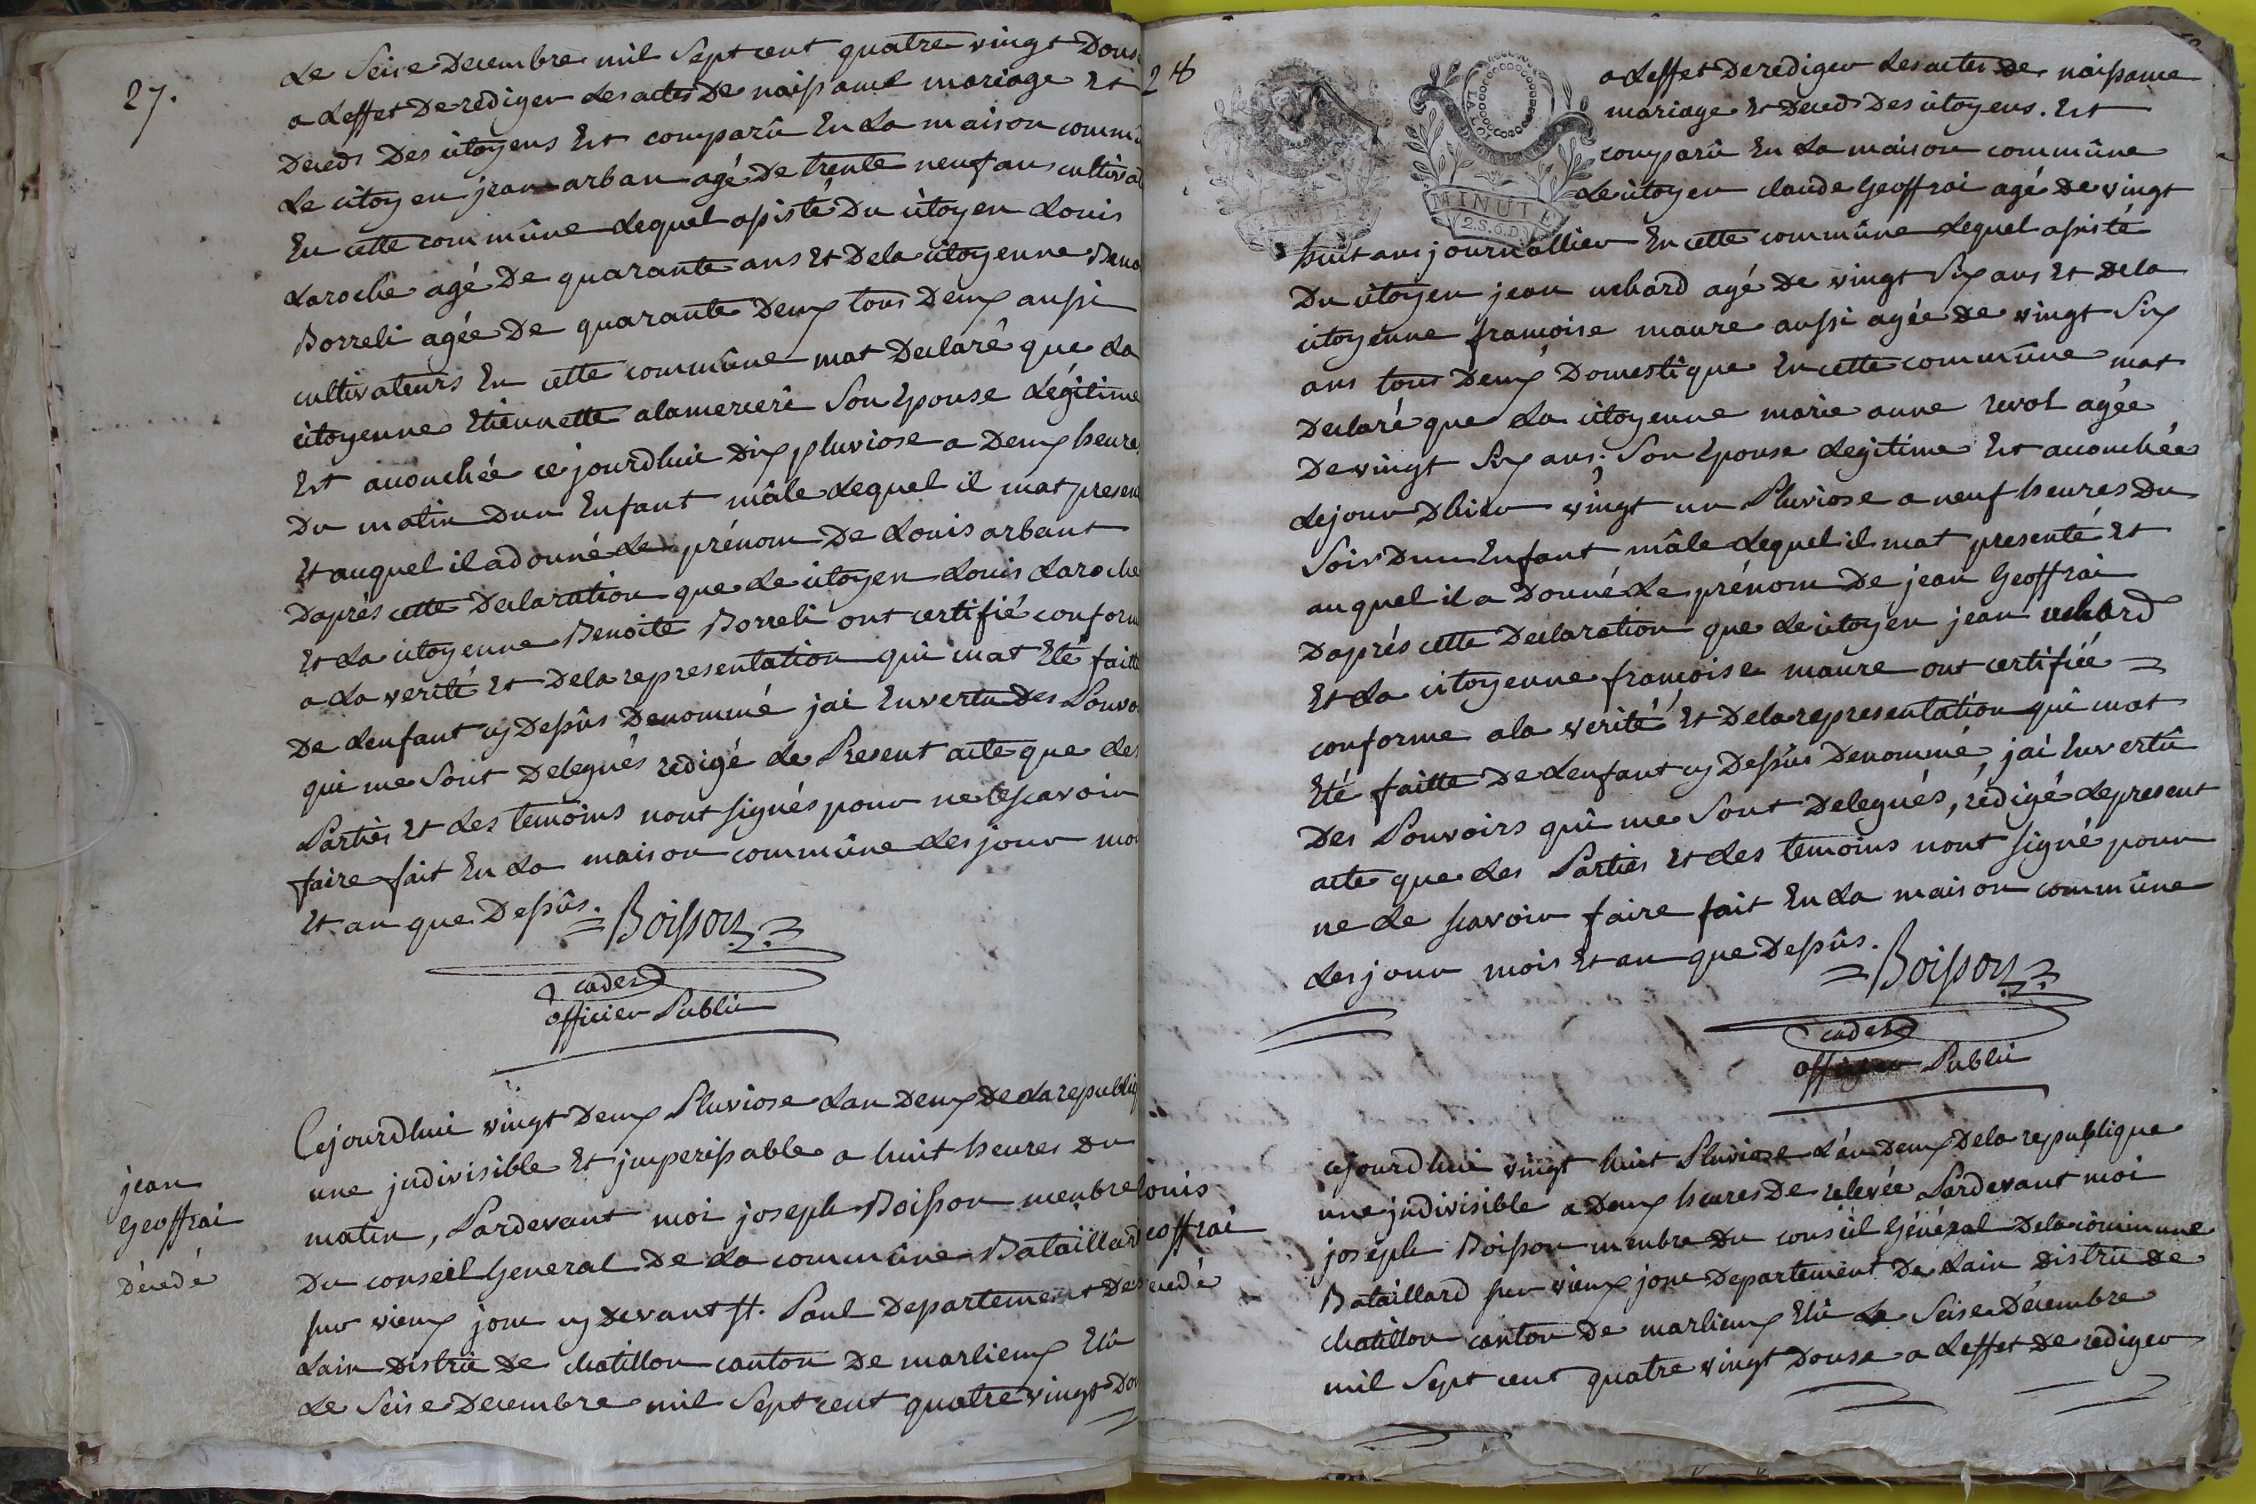 27.
Le Seise Decembre mil Sept cent quatre vingt Dous
a Leffet De rediger Les actes De naissance mariage Et
Deceds Des citoyens Est comparû En La maison comm
Le citoyen jean arban agé De trente neuf ans cultivat
En cette commûne Lequel assisté Du citoyen Louis
Laroche agé De quarante ans Et De la citoyenne Beno
Borreli agée De quarante Deux tous Deux aussi
cultivateurs En cette commûne mat Declaré que La
citoyenne Etiennette alamercerie Son Epouse Légitime
Est accouchée ce jourdhui Dix pluviose a Deux heures
Du matin Dun Enfant mâle Lequel il mat present
Et auquel il a donné Le prénom De Louis arbant
Daprés cette Declaration que Le citoyen Louis Laroche
Et La citoyenne Benoite Borreli ont certifié conform
a La verité Et De la representation qui mat Eté faitt
De Lenfant cy Dessûs Denommé jai En vertu Des Pouvo
qui me Sont Delegués redigé Le Present acte que Les
Parties Et Les temoins nont signés pour ne le scavoir
faire fait En La maison commûne Les jour moi
Et an que Dessûs.
Boisson
cadet
officier Public
jean
Geoffrai
Décedé
Cejourdhui vingt Deux Pluviose Lan Deux De La republiq
une jndivisible Et jmperissable a huit heures Du
matin, Pardevant moi joseph Boisson menbre
Du conseil General De La commûne Bataillard
sur vieux jonc cy Devant St. Paul Departement De
Lain Distric De chatillon canton De marlieux Elû
Le Seise Decembre mil Sept cent quatre vingt Dou
28
LA LOI
MINUTE
2.S.6.D.
a Leffet De rediger Les actes De naissance
mariage Et Deceds Des citoyens. Est
comparû En La maison commûne
Le citoyen claude Geoffrai agé De vingt
huit ans journallier En cette commûne Lequel assisté
Du citoyen jean uchard agé De vingt Six ans Et De la
citoyenne francoise maure aussi agée De vingt Six
ans tous Deux Domestique En cette commûne mat
Declaré que La citoyenne marie anne revol agée
De vingt Six ans. Son Epouse Legitime Est accouchée
Le jour Dhier vingt un Pluviose a neuf heures Du
Soir Dun Enfant mâle Lequel il mat presenté Et
auquel il a Donné Le prénom De jean Geoffrai
Daprés cette Declaration que Le citoyen jean uchard
Et La citoyenne francoise maure ont certifiée
conforme a la verité Et De la representation qui mat
Eté faitte De Lenfant cy Dessûs Denommé, jai En vertû
Des Pouvoirs qui me Sont Delegués, rédigé Le present
acte que Les Parties Et Les temoins nont signé pour
ne Le scavoir faire fait En La maison commûne
Les jour mois Et an que Dessûs.
Boisson
cadet
officier Public
Louis
Geoffrai
Décedé
cejourdhui vingt huit Pluviose L'an Deux De la republique
une jndivisible a Deux heures De relevée Pardevant moi
joseph Boisson membre Du conseil Général De la commune
Bataillard sur vieux jonc Departement De Lain Distric De
chatillon canton De marlieux Elû Le Seise Décembre
mil Sept cent quatre vingt Douse a Leffet de rediger